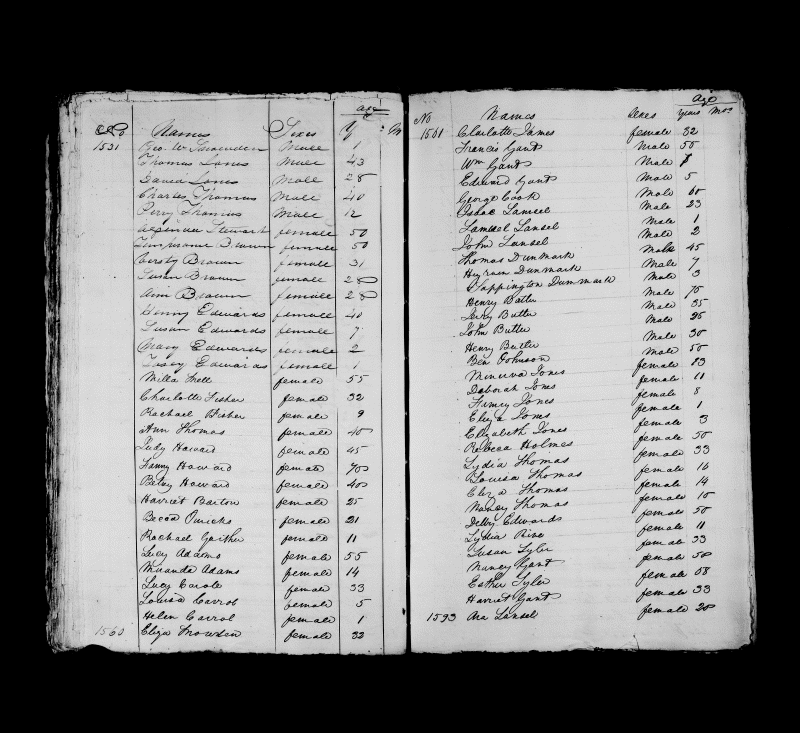 No Names Sexes Age Y M
1531 Geo. W Snowden Male 1
Thomas Jones Male 43
David Jones Male 28
Charles Thomas Male 40
Perry Thomas Male 12
Stewart female 50
Brown female 50
Betsy Brown female 31
Susan Brown female 28
Ann Brown female 28
Ginny Edwards female 40
Susan Edwards female 7
Edwards female 2
Edwards female 1
Milla female 55
Charlotte Fisher female 32
Rachael Fisher female 9
Ann Thomas female 40
Judy Howard female 45
Fanny Howard female 70
Betsy Howard female 40
Harriet Barton female 25
Becca female 21
Rachael Gaither female 11
Lucy Adams female 55
Miranda Adams female 14
Lucy female 33
Louisa Carrol female 5
Helen Carrol female 1
1560 Eliza Snowden female 32
No Names Sexes Age Years Mos
1561 Charlotte James female 32
Francis Gant Male 50
Wm Gant Male 7
Edward Gant Male 5
George Cook Male 60
Isaac Lansel Male 23
Lansel Male 1
John Lansel Male 2
Thomas Dunmark Male 45
Hyram Dunmark Male 7
Sappington Dunmark Male 3
Henry Butler Male 75
Butler Male 35
John Butler Male 25
Henry Butler Male 30
Ben Johnson Male 50
Minerva Jones female 23
Deborah Jones female 11
Jones female 8
Eliza Jones female 1
Elizabeth Jones female 3
Rebecca Holmes female 50
Lydia Thomas female 33
Louisa Thomas female 16
Eliza Thomas female 14
Nancy Thomas female 10
Edwards female 50
Lydia Rise female 11
Susan Tyler female 33
Nancy Gant female 50
Esther Tyler female 58
Harriet Gant female 33
1593 Ara Lansel female 20